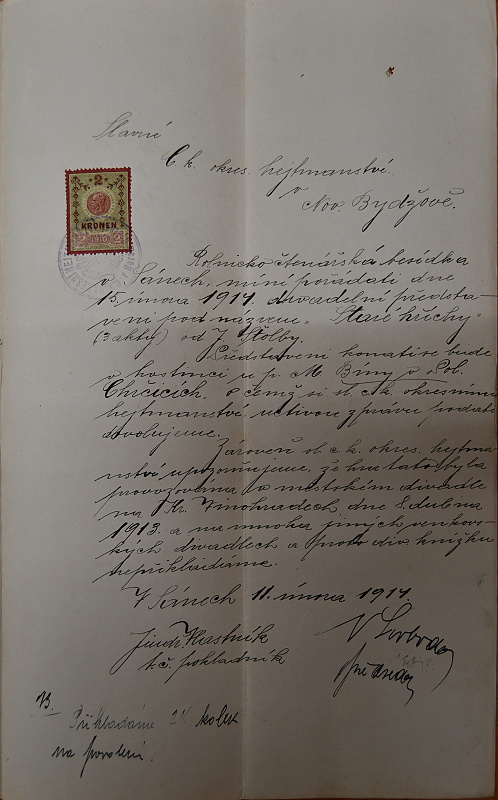 Slavné
C. k. okres. hejtmanství
v
Nov. Bydžově.
2
KRONEN
2 1910 2
Rolnicko čtenářská besídka
v Sánech, míní pořádati dne
15. února 1914. divadelní předsta-
vení pod názvem „Staré hříchy"
(3 akty) od J. Štolby.
Představení konati se bude
v hostinci u p. M. Bíny v Lob.
Chrčicích. O čemž si sl. c. k. okresnímu
hejtmanství uctivou zprávu podati
dovolujeme.
Zároveň sl. c. k. okres. hejtma-
nství upozorňujeme, že hra tato byla
provozována v městském divadle
na Kr. Vinohradech dne 8. dubna
1913. a na mnoha jiných venkov-
ských divadlech a proto div. knížku
nepřikládáme.
V Sánech 11. února 1914.
Jindř. Hlastník
t. č. pokladník
V Svoboda
předseda
NB.
Přikládáme 2 K kolek
na povolení.